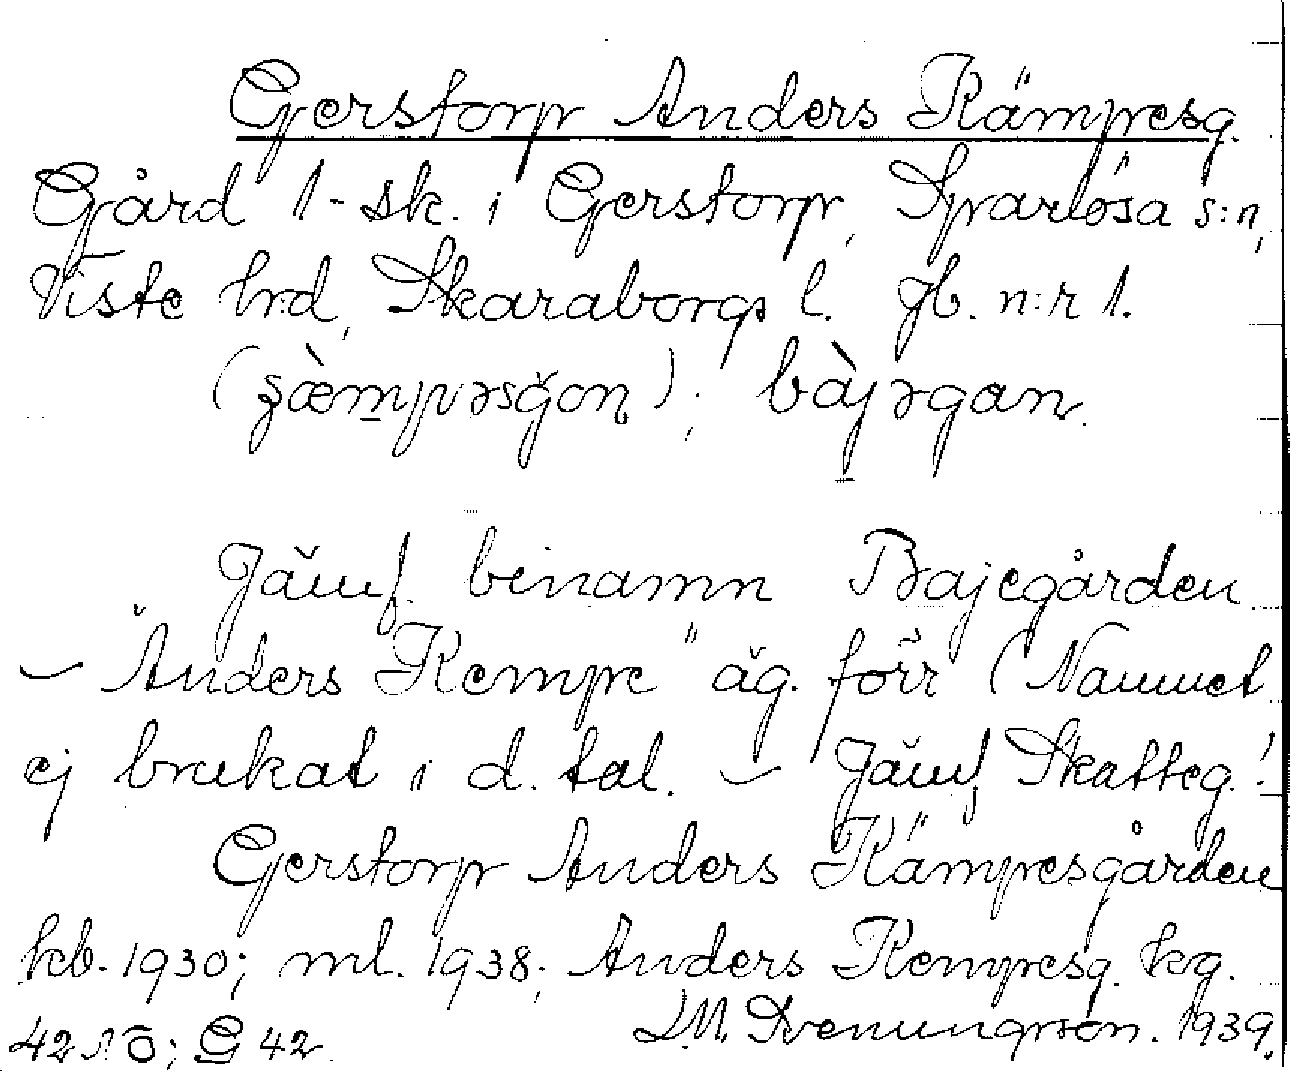 Gerstorp Anders Kämpesg.
Gård 1-sk. i Gerstorp, Sparlösa s:n,
Viste hrd, Skaraborgs l. Jb. n:r 1.
bàjǝgan.
Jämf. benamn Bajegården
– "Anders Kempe" äg. förr (Namnet
ej brukat i d. tal. – Jämf. Skatteg.!
Gerstorp Anders Kämpesgården
kb. 1930; ml. 1938; Anders Kempesg. kg.
42 NÖ; G 42. Svenungsson. 1939.